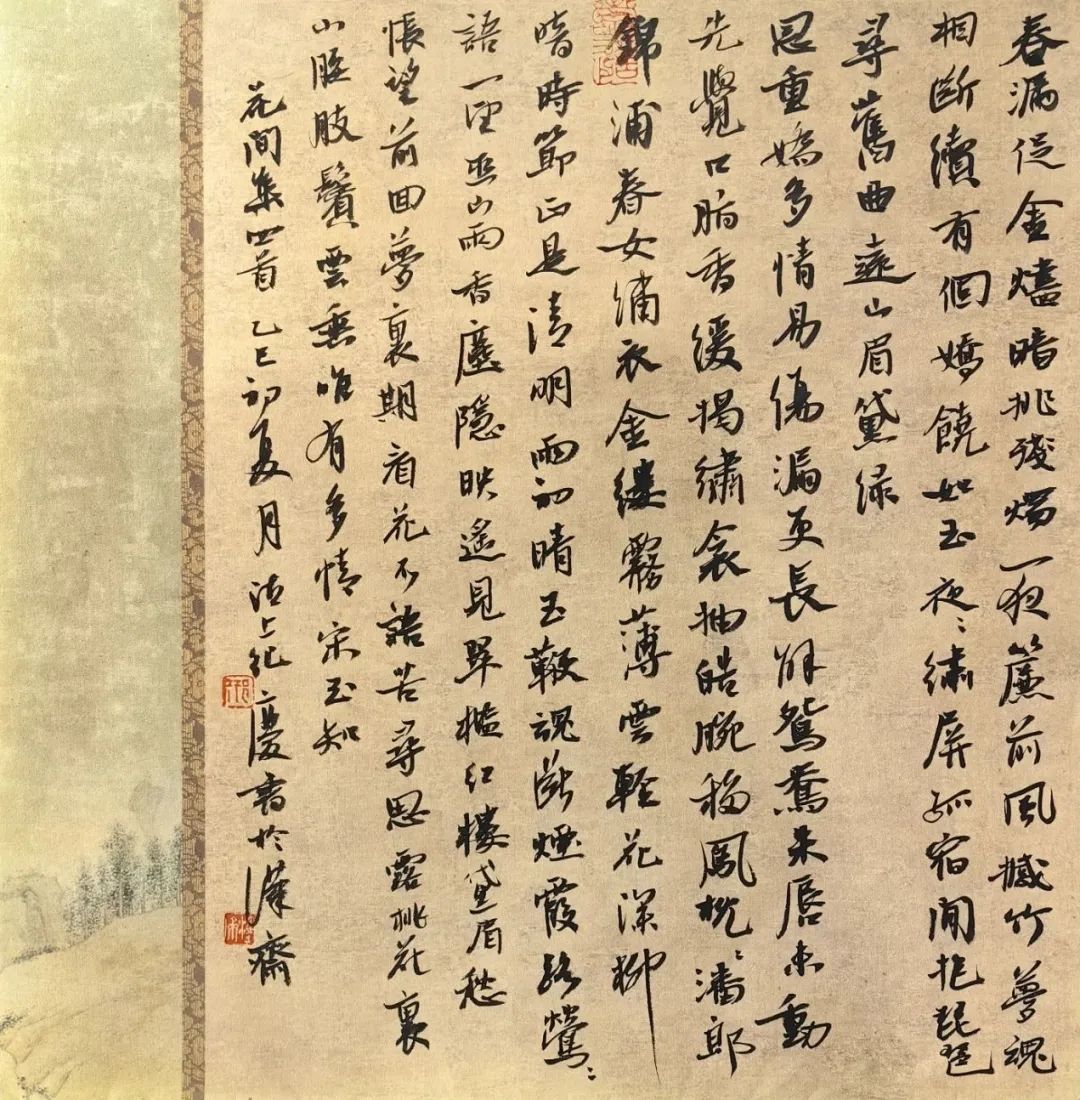 春漏促金燼暗挑殘燭一夜簾前風撼竹夢魂
相斷續有個嬌饒如玉夜〻繡屏孤宿閒抱琵琶
尋舊曲遠山眉黛綠
恩重嬌多情易傷漏更長解鴛鴦朱唇未動
先覺口脂香緩揭繡衾抽皓腕移鳳枕〻潘郎
錦浦春女繡衣金縷霧薄雲輕花深柳
暗時節正是清明雨初晴玉鞭魂斷煙霞路鶯〻
語一望巫山雨香塵隱映遙見翠檻紅樓黛眉愁
悵望前回夢裏期看花不語苦尋思露桃花裏
小腰肢鬢雲垂唯有多情宋玉知
花間集四首 乙巳初夏月 沽上 慶書於 齋